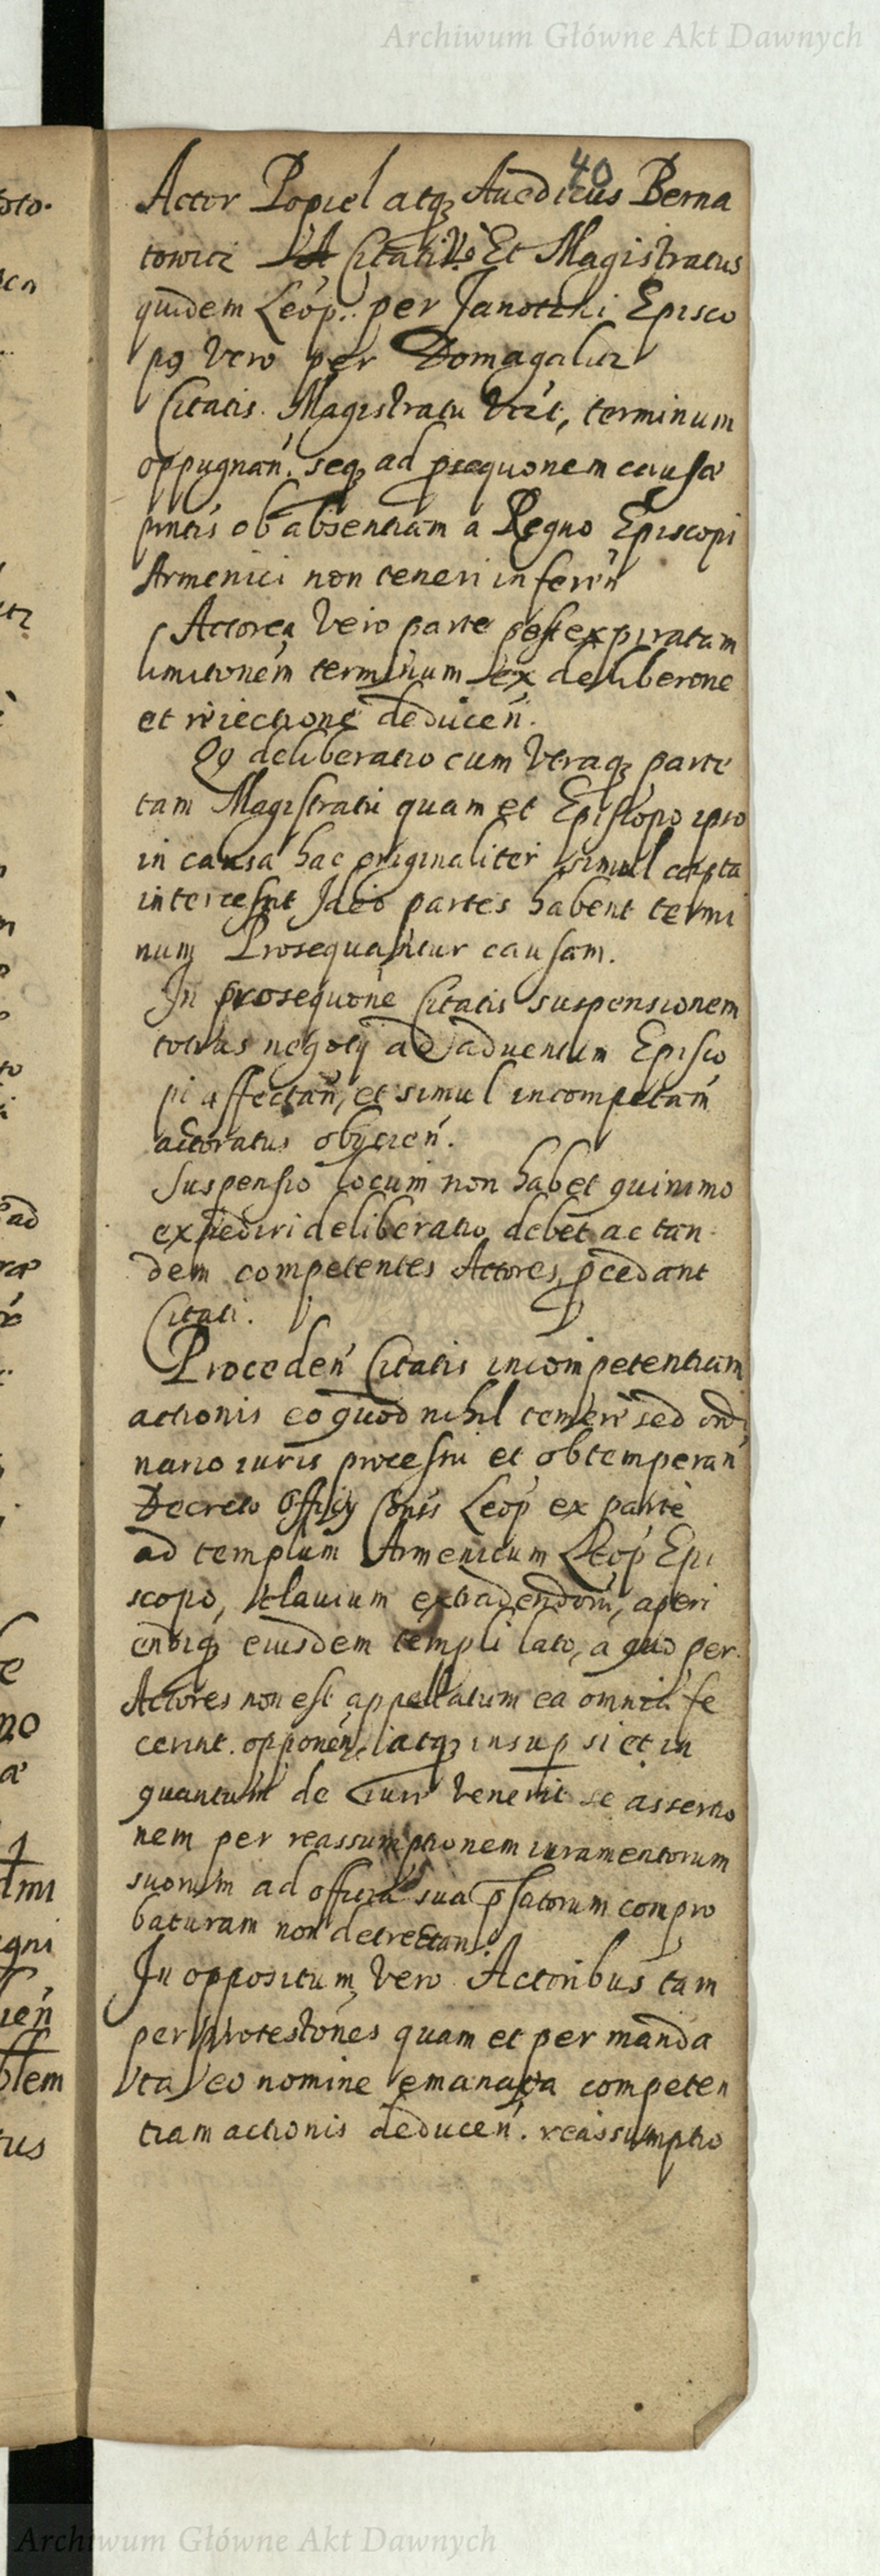 Archiwum Główne Akt Dawnych
40
Actor Popiel atq3 Auedicus Berna
towicz Citati Vo Et Magistratus
quidem Leop. per Janotchi Episco
p9 vero per Domagalicz
Citatis Magistratu terminum
oppugnan. seq3 ad psequonem causæ
pntis ob absentiam a Regno Episcopi
Armenici non teneri inferen
Actorea Vero parte post expiratam
limitonem terminum ex deliberone
et reiectione deducen.
Qq deliberatio cum utraq3 parte
tam Magistratu quam et Episcopo ipso
in causa hac originaliter simul capta
intercessit Ideo partes habent termi
num Prosequantur causam.
In prosequone Citatis suspensionem
totius negotij ad aduentum Episco
pi affectan, et simul incompetam
actoratus obijcien.
Suspensio locum non habet quinimo
expediri deliberatio debet ac tan
dem competentes Actores, pcedant
Citati.
Proceden Citatis incompetentiam
actionis eo quod nihil temere sed ordi
nario iuris processui et obtemperan
Decreto Officij Conis Leop ex parte
ad templum Armenicum Leop Epi
scopo, Clauium extradendarum, aperi
endiq3 eiusdem templi lato, a quo per
Actores non est appellatum ea omnia fe
cerint. opponen, atq3 insup si et in
quantum de iure venerit se assertio
nem per reassumptionem iuramentorum
suorum ad officia sua pstatorum compro
baturam non detrectan.
In oppositum Vero Actoribus tam
per protestones quam et per manda
ta eo nomine emanata competen
tiam actionis deducen. reassumptio
Archiwum Główne Akt Dawnych